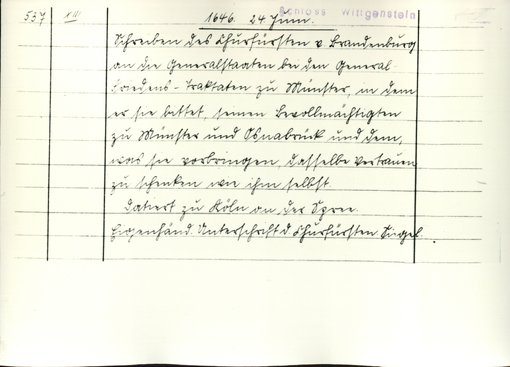 537 XIII 1646. 24 Juni. Schloss Wittgenstein
Schreiben des Churfürsten v. Brandenburg
an die Generalstaaten bei den General-
Friedens-Traktaten zu Münster, in dem
er sie bittet, seinen Bevollmächtigten
zu Münster und Osnabrück und dem,
was sie vorbringen, dasselbe Vertrauen
zu schenken wie ihm selbst.
Datiert zu Köln an der Spree.
Eigenhänd. Unterschrift d. Churfürsten Siegel.